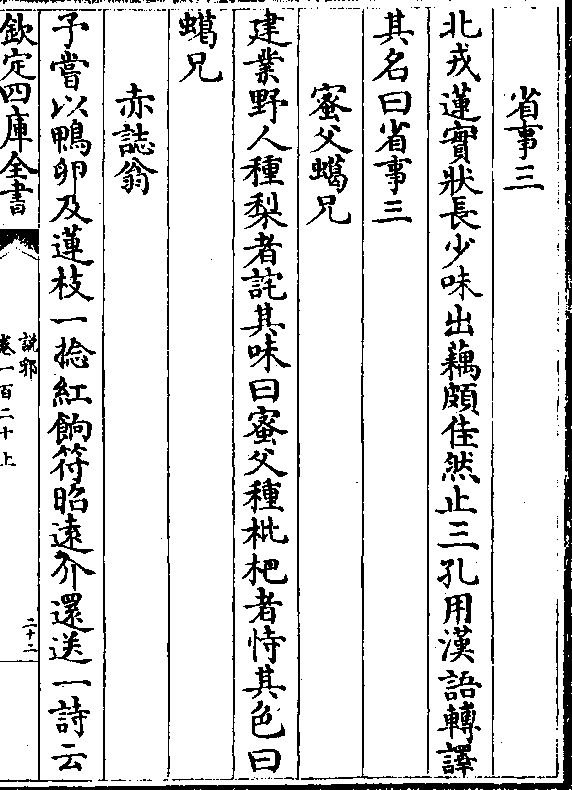 省事三
北戎蓮實狀長少味出藕頗佳然止三孔用漢語轉譯
其名曰省事三
蜜父蠟兄
建業野人種梨者詫其味曰蜜父種枇杷者恃其色曰
蠟兄
赤誌翁
予嘗以鴨卵及蓮枝一捻紅餉符昭遠介還送一詩云
欽定四庫全書
說郛
卷一百二十上
二十二